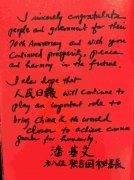 I sincerely congratulate
people and government for their
70th Anniversary and wish you
continued prosperity, peace
and harmony in the future.
I also hope that
人民日報 will continue to
play an important role to
bring China & the world
closer to achieve common
for humanity.
潘基文